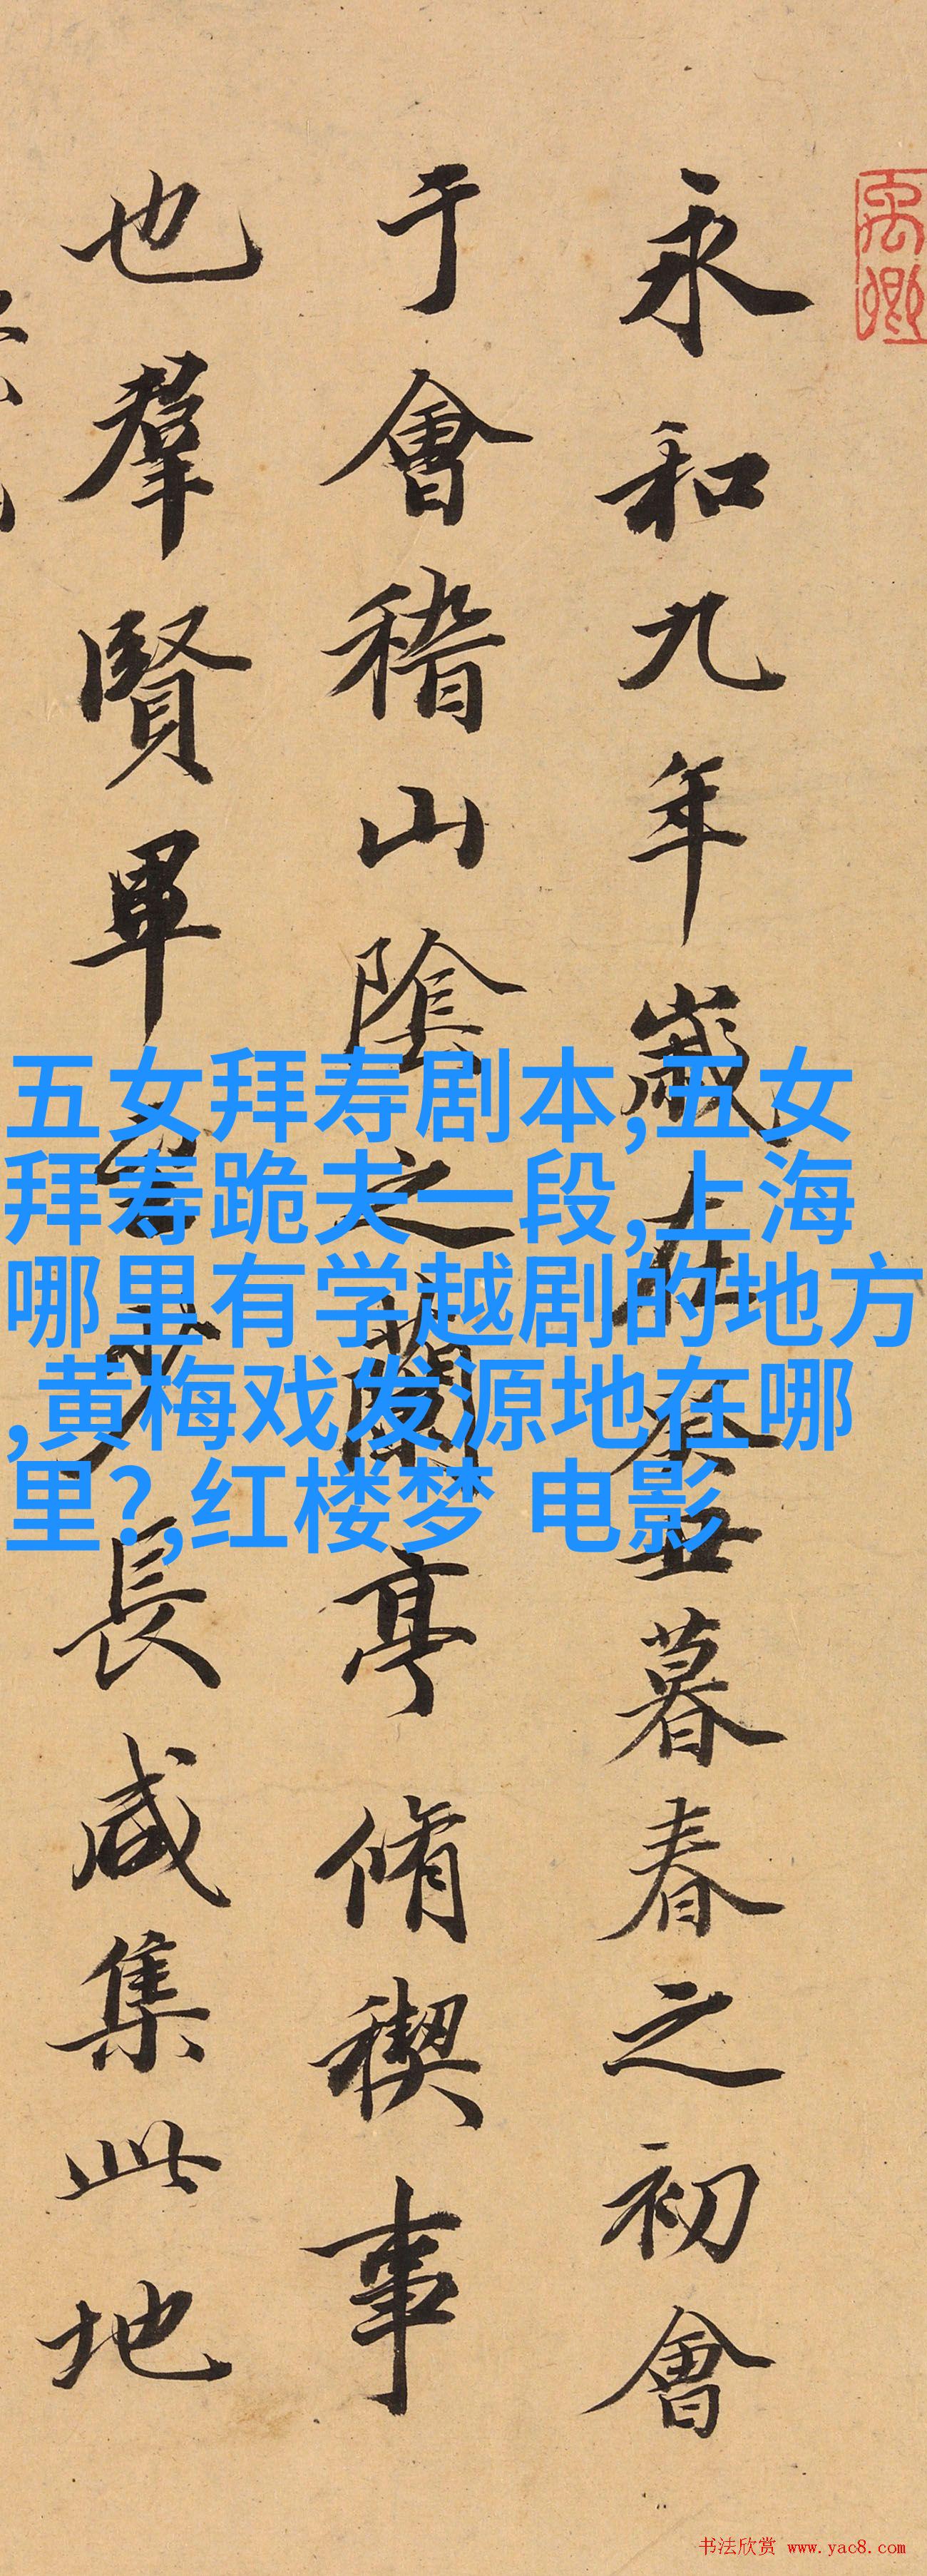 永和九年歲在癸丑暮春之初會
于會稽山陰之蘭亭脩稧事
也羣賢畢至少長咸集此地
五女拜寿剧本,五女
拜寿跪夫一段,上海
哪里有学越剧的地方
,黄梅戏发源地在哪
里?,红楼梦 电影
书法欣赏 www.yac8.com